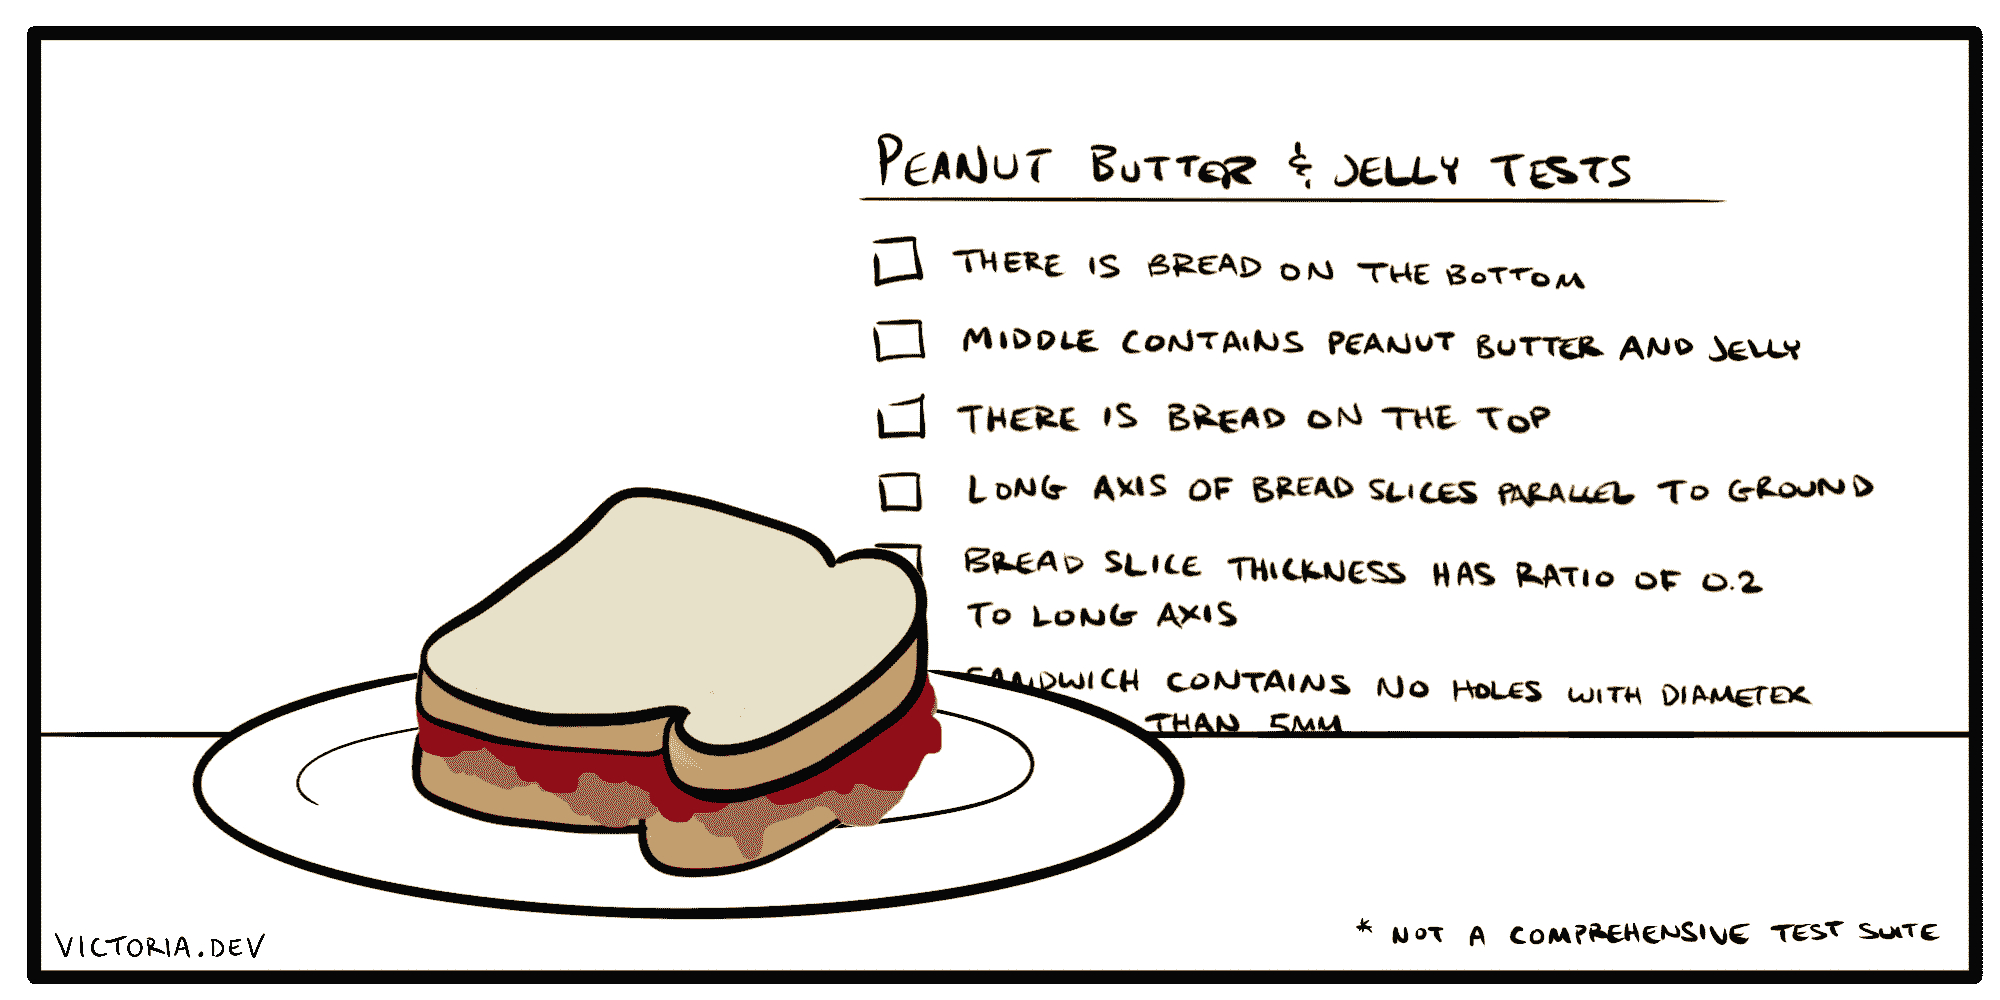 PEANUT BUTTER & JELLY TESTS
THERE IS BREAD ON THE BOTTOM
MIDDLE CONTAINS PEANUT BUTTER AND JELLY
THERE IS BREAD ON THE TOP
LONG AXIS OF BREAD SLICES PARALLEL TO GROUND
BREAD SLICE THICKNESS HAS RATIO OF 0.2
TO LONG AXIS
SANDWICH CONTAINS NO HOLES WITH DIAMETER
THAN 5MM
VICTORIA.DEV
* NOT A COMPREHENSIVE TEST SUITE